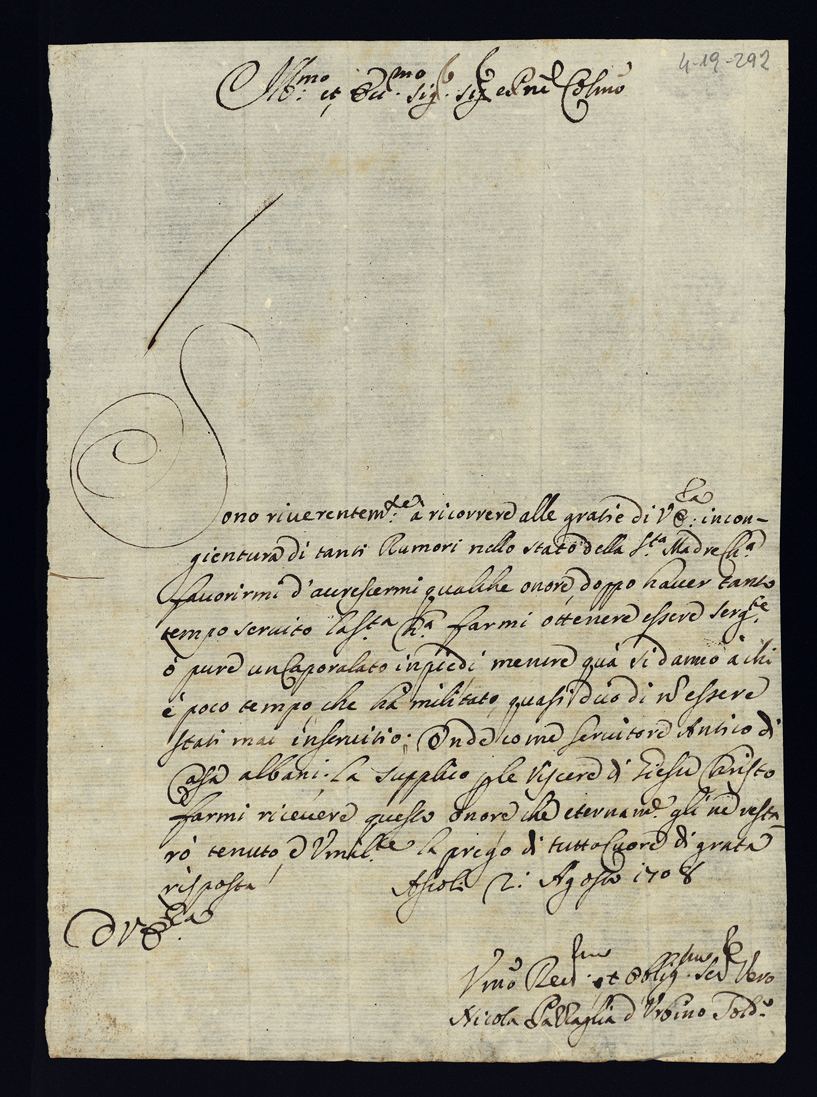 4-19-292
Ill:mo et Ecc:mo Sig:r Sig:r e Pne Colmo
Sono riverentem:te à ricorrere alle gratie di V E:za in con-
gientura di tanti Rumori nello stato della S:ta Madre Ch:a
favorirmi d'acrescermi qualche onore, doppo haver tanto
tempo servito la S:ta Ch:a farmi ottenere essere Serg:te
ò pure un Caporalato in piedi mentre quà si danno à chi
è poco tempo che ha militato, quasi dico di nō essere
stati mai in servitio; Onde come servitore Antico di
Casa Albani: la supplico p le Viscere di Giesù Christo
farmi ricevere questo onore che eternam:e gli ne resta
rò tenuto, e Umil:te la prego di tutto Cuore di grata
risposta
Ascoli 2: Agosto 1708
D V E:za
Umo Rev:mo et Oblig:mo Ser Vero
Nicola Pallaglia d Urbino Sold:o